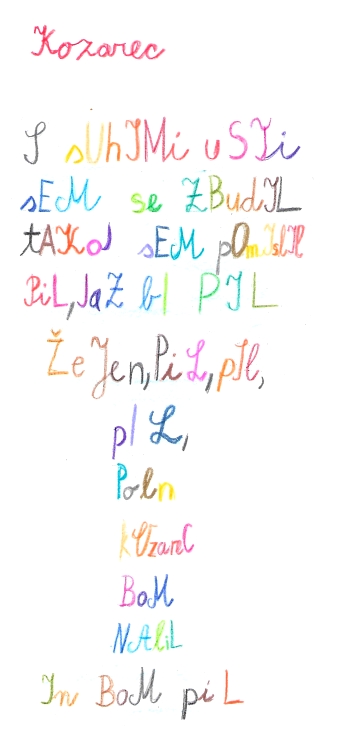 Kozarec
S sUhIMi uSTi
sEM se ZBudIL
tAKoJ sEM pOmIslIl
PiL, JaZ bI PIL
ŽeJen, PiL, pIl,
pIL,
Poln
kOzareC
BoM
NAliL
In BoM piL